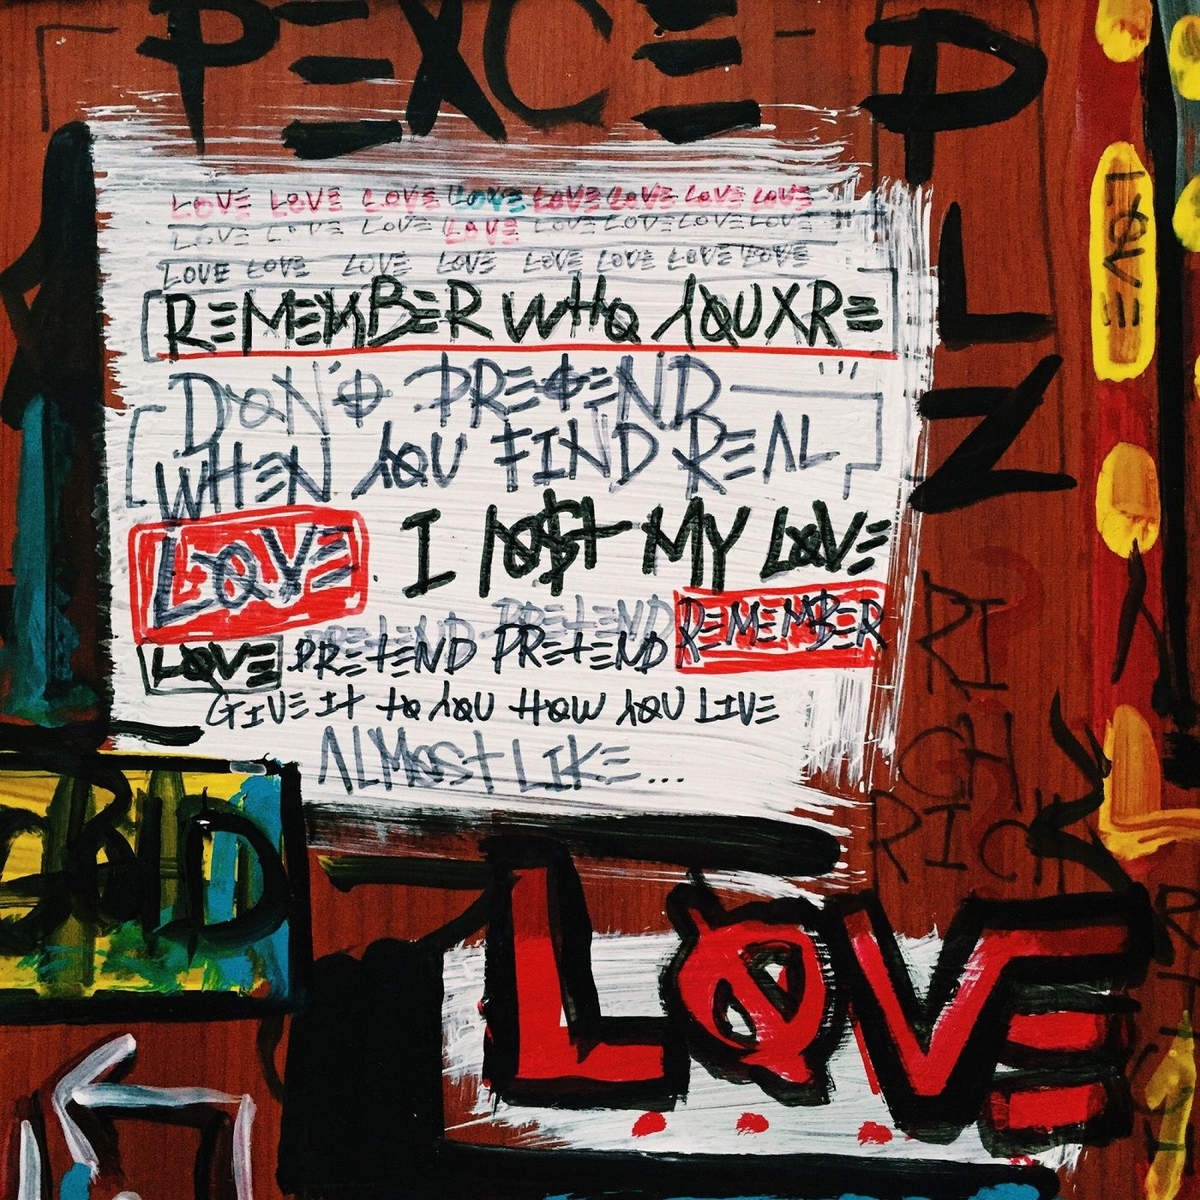 PEXCE PLZ
LOVE LOVE LOVE LOVE LOVE LOVE LOVE LOVE
LOVE LOVE LOVE LOVE LOVE LOVE LOVE LOVE
LOVE LOVE LOVE LOVE LOVE LOVE LOVE LOVE
REMEMBER WHO YOUXRE
DON'T PRETEND
WHEN YOU FIND REAL
LOVE. I LO$T MY LOVE
PRETEND PRETEND
LOVE PRETEND PRETEND REMEMBER
GIVE IT TO YOU HOW YOU LIVE
ALMOST LIKE...
LOVE
RICH
RIC
LOVE